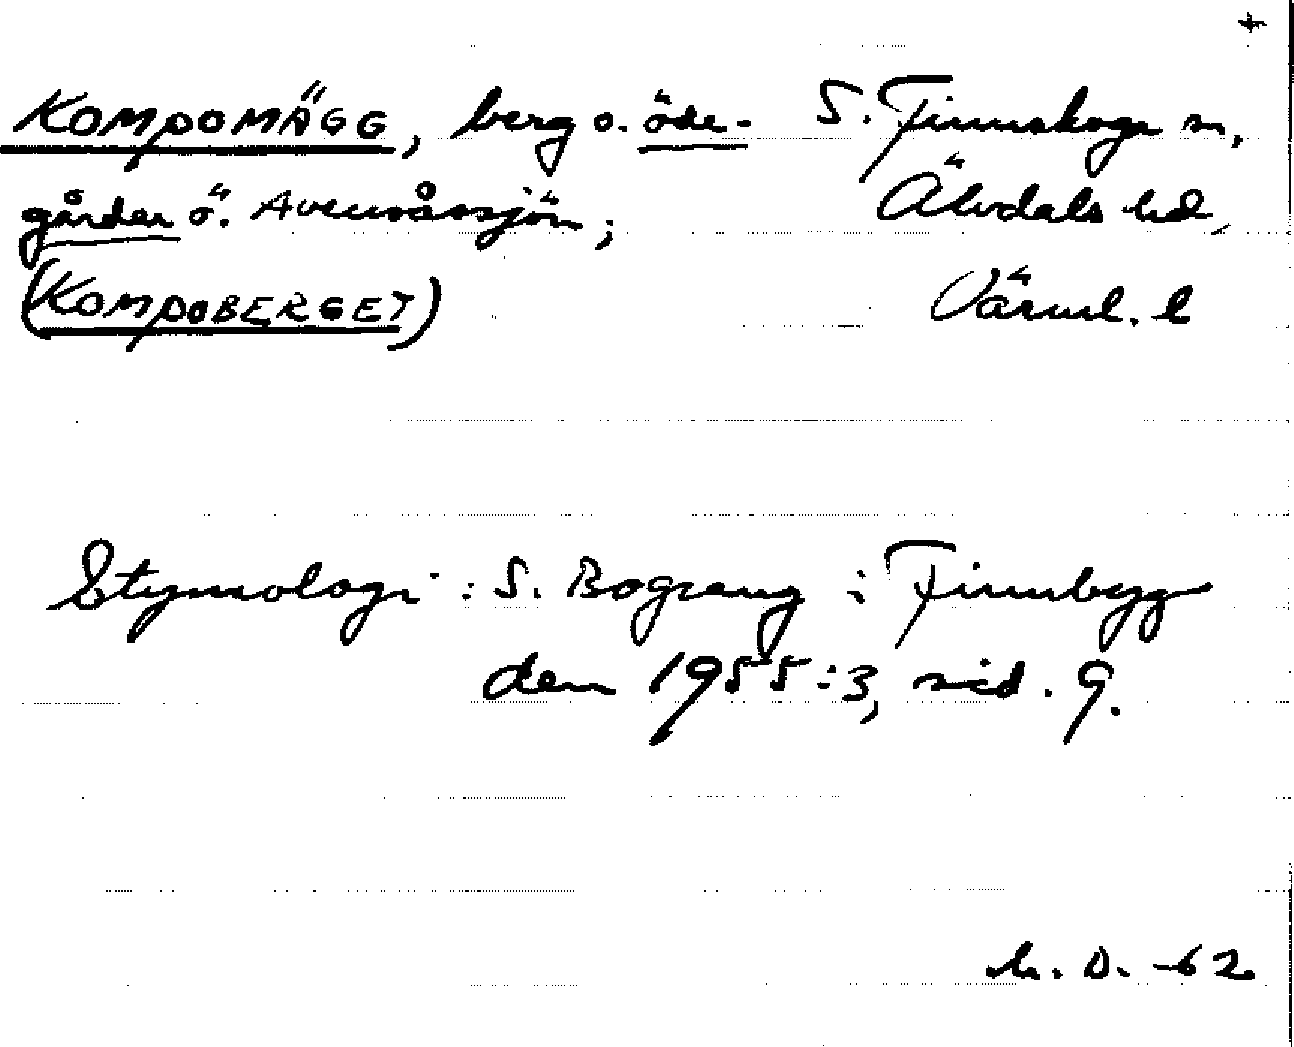 KOMPOMÄGG, berg o. öde- S. Finnskoga sn,
gårdar ö. Avenvåssjön; Älvdals hd,
(KOMPOBERGET) Värml. l
Etymologi: S. Bograng i Finnbyg
den 1955:3, sid. 9.
D. -62